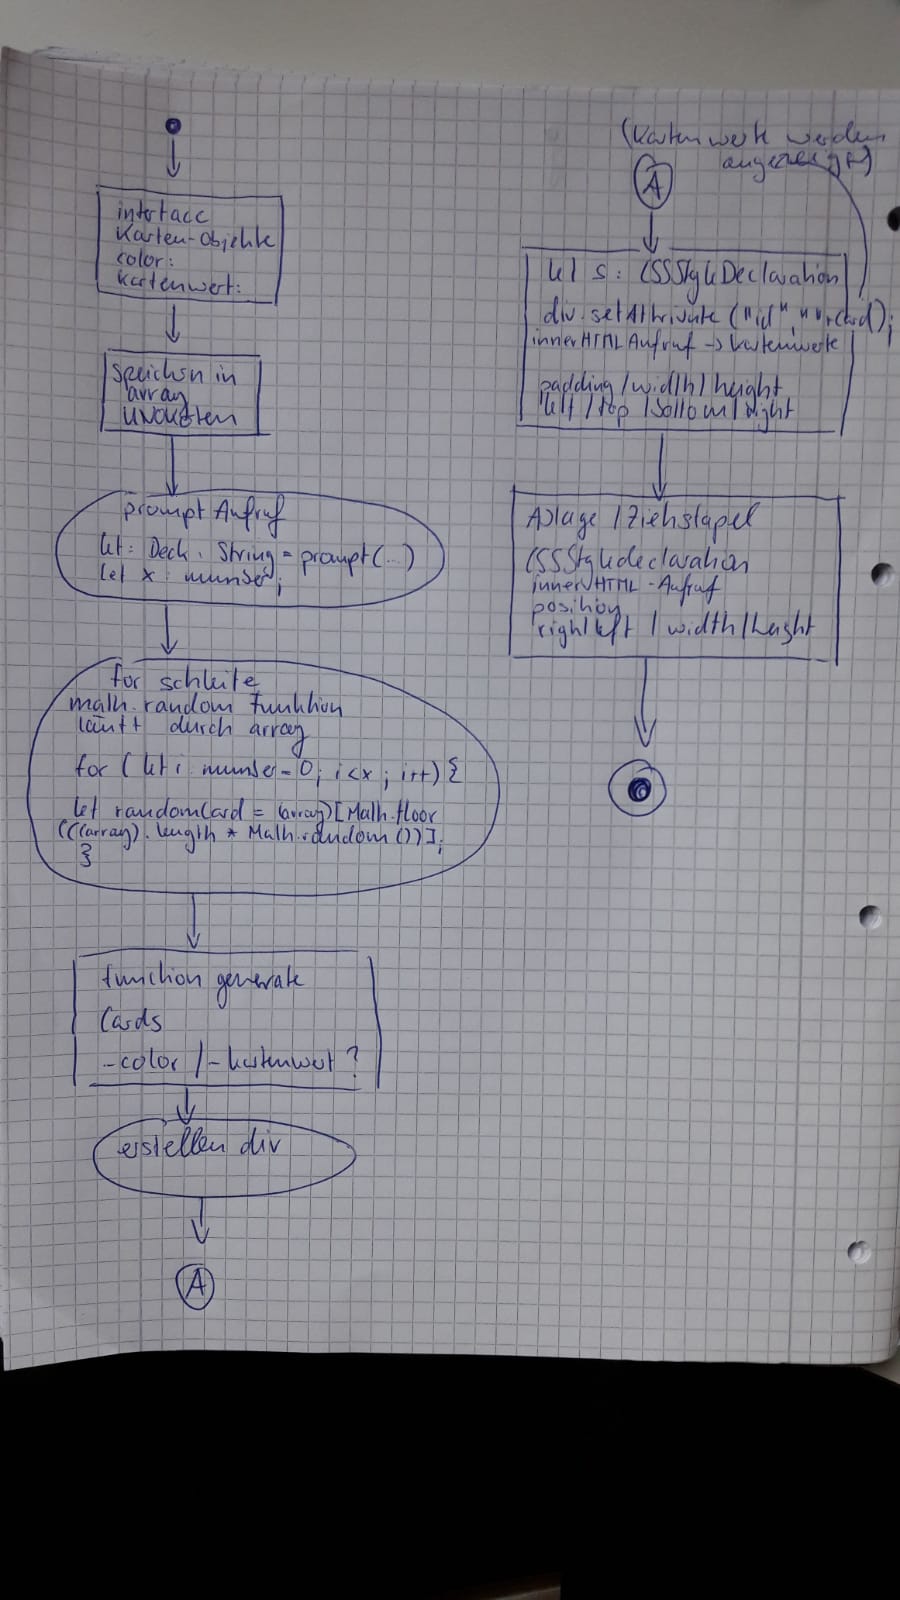 interface
Karten-Objekte
color:
kartenwert:
speichern in
array
prompt Aufruf
let: Deck: String = prompt(...)
let x: number;
for schleife
math.random Funktion
läuft durch array
for (let i number = 0; i<x; i++) {
let randomCard = (array)[Math.floor
(((array).length * Math.random())];
}
function generate
Cards
-color /-kartenwert?
erstellen div
A
(Kartenwerte werden
angezeigt)
A
let s: CSSStyleDeclaration
div.setAttribute("id",
innerHTML Aufruf → Kartenwerte
padding/width/height
left/top/bottom/right
Ablage/Ziehstapel
CSSStyledeclaration
innerHTML-Aufruf
position
right left / width/height